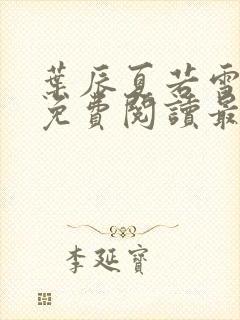 葉辰夏若雪
免費閱讀最
李延寶